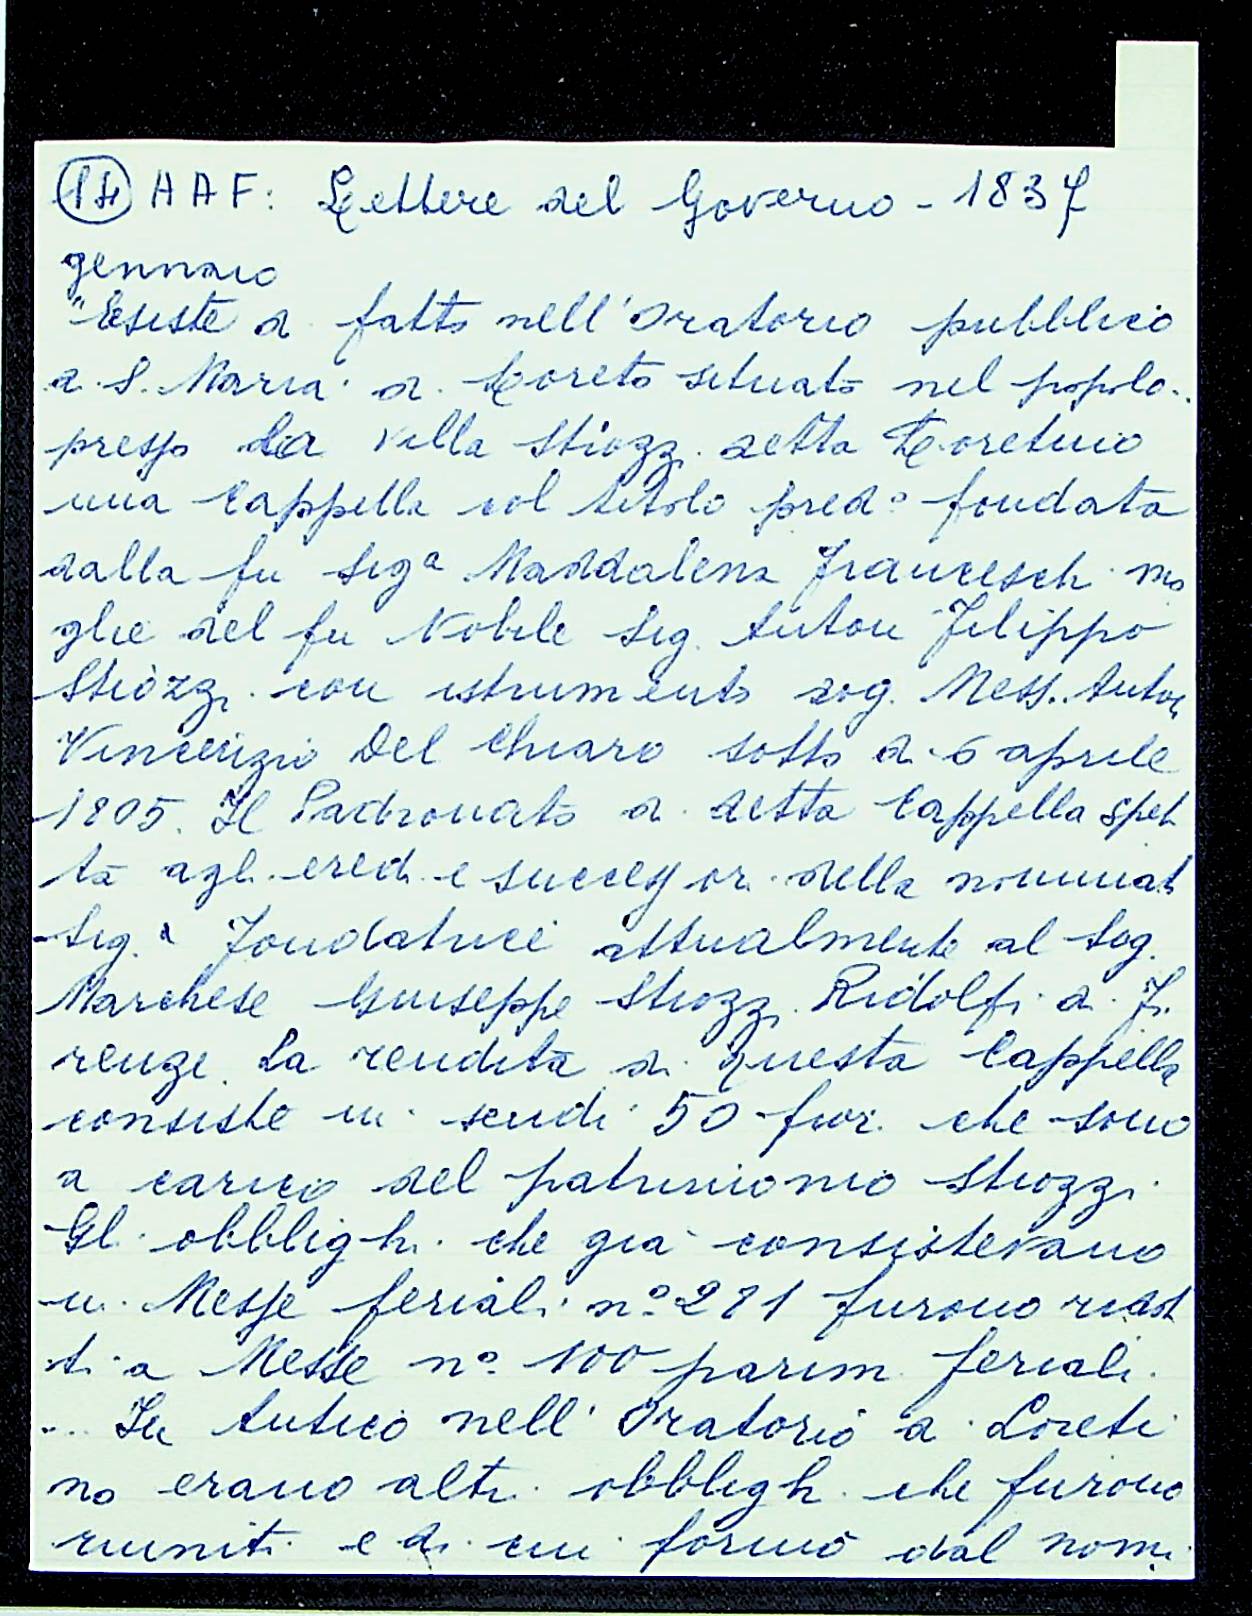 (14) AAF: Lettere del Governo - 1837
gennaio
"Esiste di fatto nell'Oratorio pubblico
di S. Maria di Loreto situato nel popolo..
presso La villa Strozzi detta Loretino
una Cappella col titolo pred.º fondata
dalla fu Sig.ª Maddalena Franceschi mo
glie del fu Nobile Sig. Anton Filippo
Strozzi con istrumento rog. Mess. Anton
Vincenzio Del Chiaro sotto di 6 aprile
1805. Il Padronato di detta Cappella spet
ta agli eredi e successori della nominat
Sig.ª Fondatrice attualmente al Sig.
Marchese Giuseppe Strozzi Ridolfi di Fi
renze. La rendita di questa Cappella
consiste in scudi 50 fior. che sono
a carico del patrimonio Strozzi.
Gli obblighi che già consistevano
in Messe feriali nº 281 furono ridot
ti a Messe nº 100 parim. feriali.
... In Antico nell'Oratorio di Loreti
no erano altri obblighi che furono
riuniti e di cui formò dal nomi